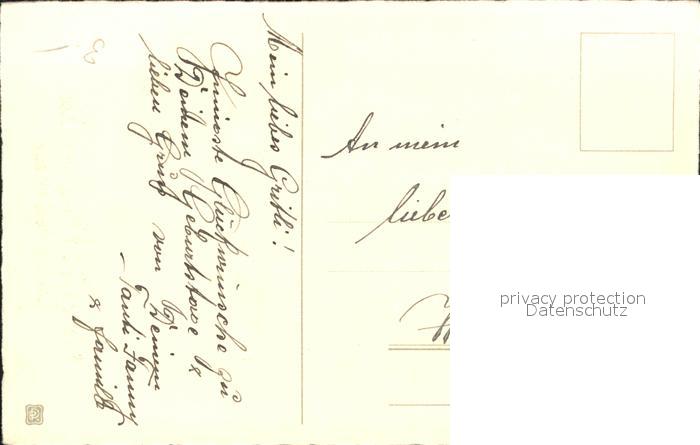 Mein liebes Gritli!
Innigste Glückwünsche zu
Deinem Geburtstage &
lieben Gruß von Deiner
Tanti Fanny
& Familie
An mein
liebe
privacy protection
Datenschutz